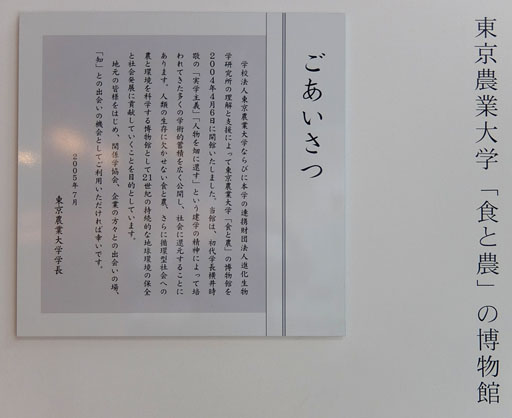 東京農業大学「食と農」の博物館
ごあいさつ
学校法人東京農業大学ならびに本学の連携財団法人進化生物
学研究所の理解と支援によって東京農業大学「食と農」の博物館を
2004年4月6日に開館いたしました。当館は、初代学長横井時
敬の「実学主義」「人物を畑に還す」という建学の精神によって培
われてきた多くの学術的蓄積を広く公開し、社会に還元することに
あります。人類の生存に欠かせない食と農、さらに循環型社会への
農と環境を科学する博物館として21世紀の持続的な地球環境の保全
と社会発展に貢献していくことを目的としています。
地元の皆様をはじめ、関係学協会、企業の方々との出会いの場、
「知」との出会いの機会としてご利用いただければ幸いです。
2005年7月
東京農業大学学長